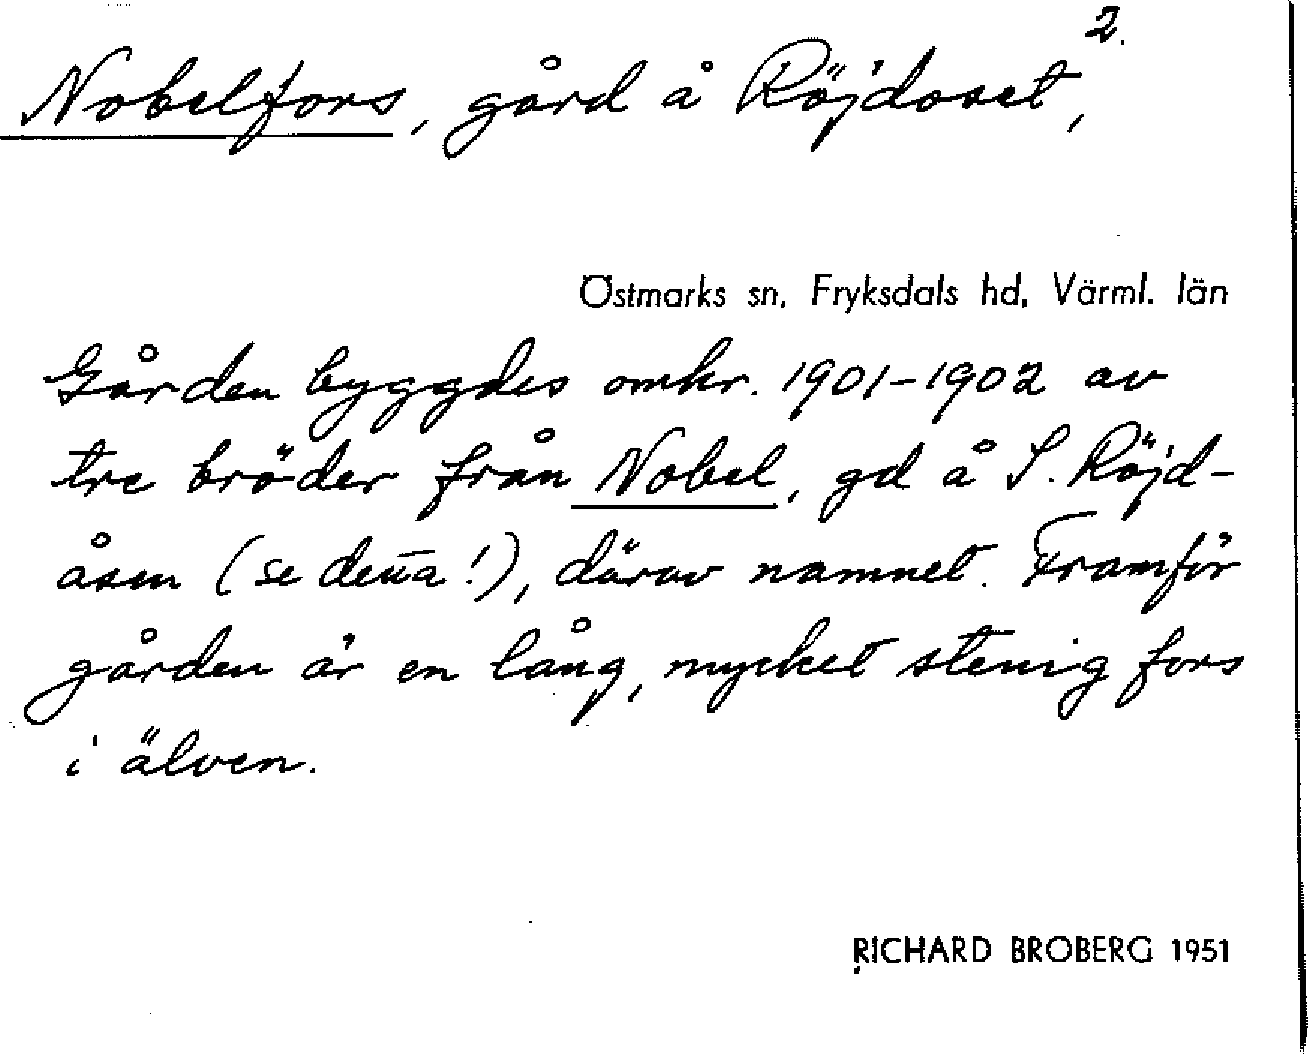 2.
Nobelfors, gård å Röjdoset,
Östmarks sn, Fryksdals hd, Värml. län
Gården byggdes omkr. 1901-1902 av
tre bröder från Nobel, gd å S. Röjd-
åsen (se denna!), därav namnet. Framför
gården är en lång, mycket stenig fors
i älven.
RICHARD BROBERG 1951